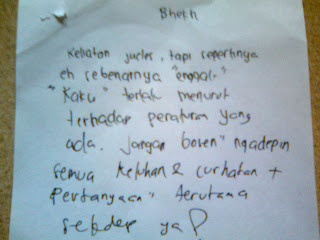 Bhekh
Keliatan judes, tapi sepertinya
eh sebenarnya
"kaku" terlalu menurut
terhadap peraturan yang
ada. jangan bosen" ngadepin
semua keluhan & curhatan +
Pertanyaan" terutama
sekdep ya?